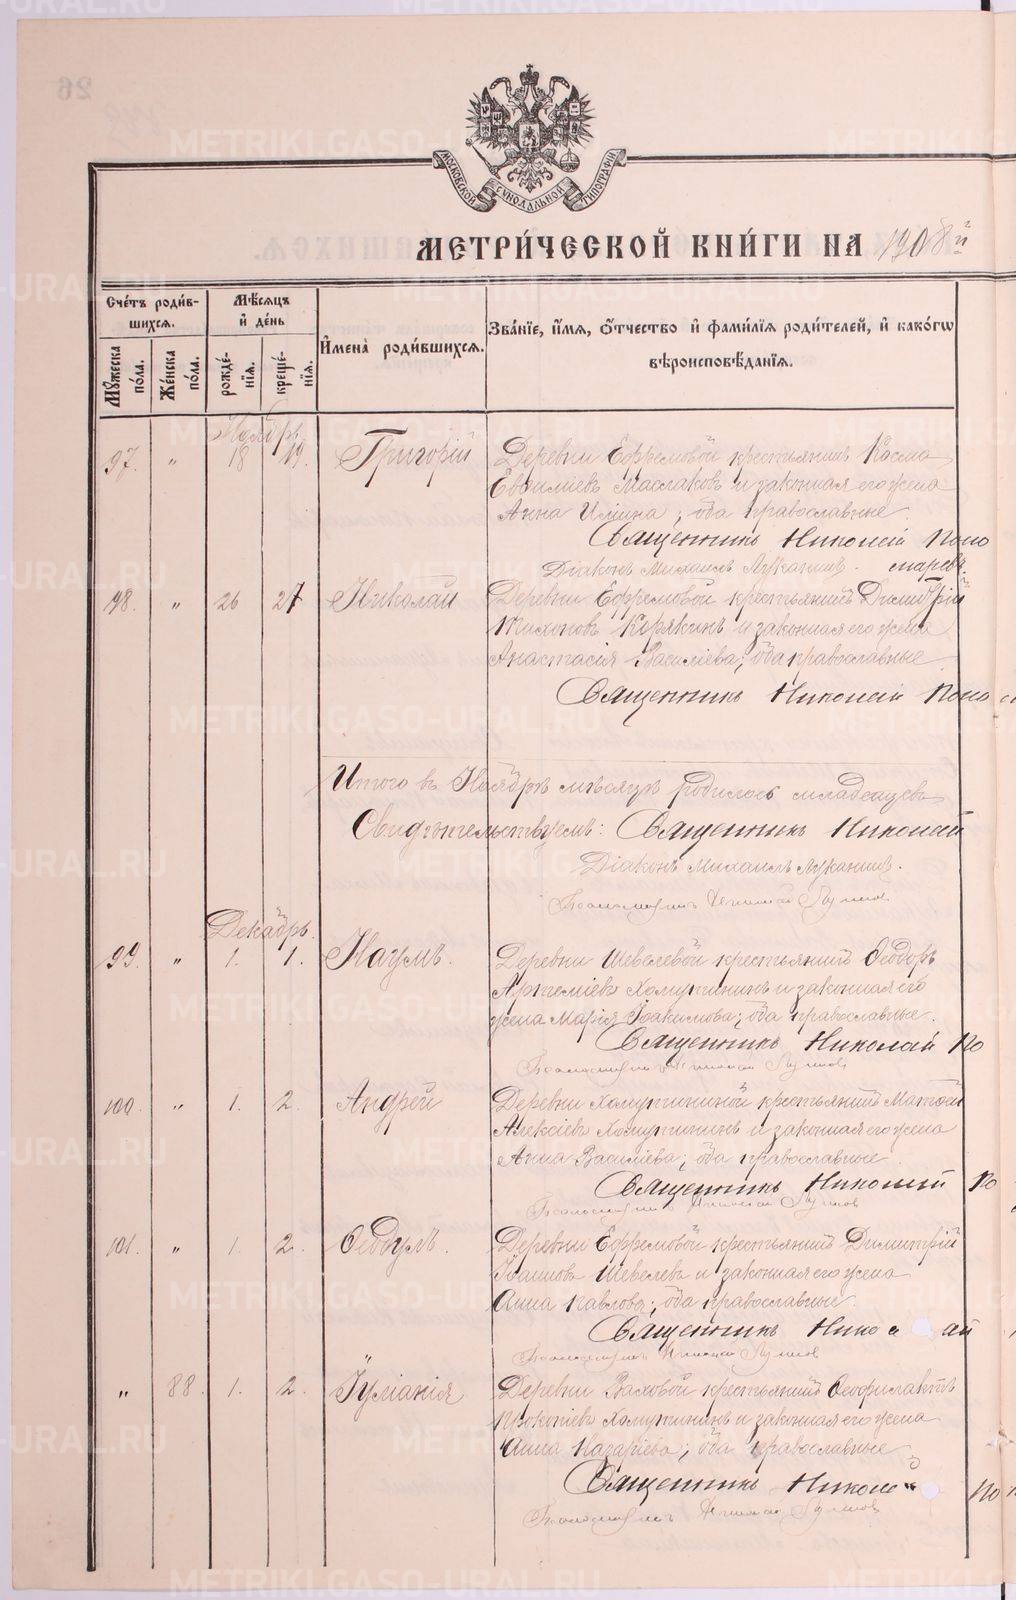 МОСКОВСКОЙ СѴНОДАЛЬНОЙ ТИПОГРАФІИ
МЕТРИ́ЧЕСКОЙ КНИ́ГИ НА 1908й
Сче́тъ роди́вшихся.
Мѣ́сяцъ и҆ де́нь
И҆мена̀ роди́вшихся.
Зва́нїе, и҆́мя, ѻ҆́тчество и҆ фами́лїя роди́телей, и҆ како́гѡ вѣроисповѣ́данїя.
Мꙋ́жеска по́ла.
Же́нска по́ла.
рожде́нїя.
креще́нїя.
Ноябрь
97. " 18 19. Григорій
Деревни Ефремовой крестьянинъ Косма
Евѳиміевъ Маслаковъ и законная его жена
Анна Ильина; оба православные
Священникъ Николай Поно
Діаконъ Михаилъ Луканинъ. маревъ.
98. " 26 27 Николай
Деревни Ефремовой крестьянинъ Димитрій
Корякинъ и законная его жена
Анастасія Василіева; оба православные
Священникъ Николай Поно
Итого въ Ноябрѣ мѣсяцѣ родилось младенцевъ
Свидѣтельствуемъ: Священникъ Николай
Діаконъ Михаилъ Луканинъ.
Псаломщикъ
Декабрь.
99. " 1. 1. Наумъ.
Деревни Шевелевой крестьянинъ Ѳеодоръ
Артеміевъ Хомутининъ и законная его
жена Марія Іоакимова; оба православные.
Священникъ Николай По
Псаломщикъ
100. " 1. 2. Андрей
Деревни Хомутининой крестьянинъ Матѳій
Алексіевъ Хомутининъ и законная его жена
Анна Василіева; оба православные
Священникъ Николай По
Псаломщикъ
101. " 1. 2. Ѳеодулъ.
Деревни Ефремовой крестьянинъ Димитрій
Іоанновъ Шевелевъ и законная его жена
Анна Павлова; оба православные.
Священникъ Никол ай
Псаломщикъ
" 88. 1. 2. Іуліанія
Деревни Ваховой крестьянинъ Ѳеофилактъ
Прокопіевъ Хомутининъ и законная его жена
Анна Назаріева; оба православные
Священникъ Николай По
Псаломщикъ
METRIKI.GASO-URAL.RU